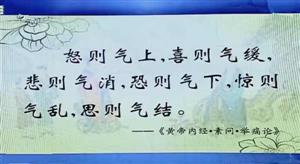 怒则气上,喜则气缓,
悲则气消,恐则气下,惊则
气乱,思则气结。
——《黄帝内经·素问·举痛论》